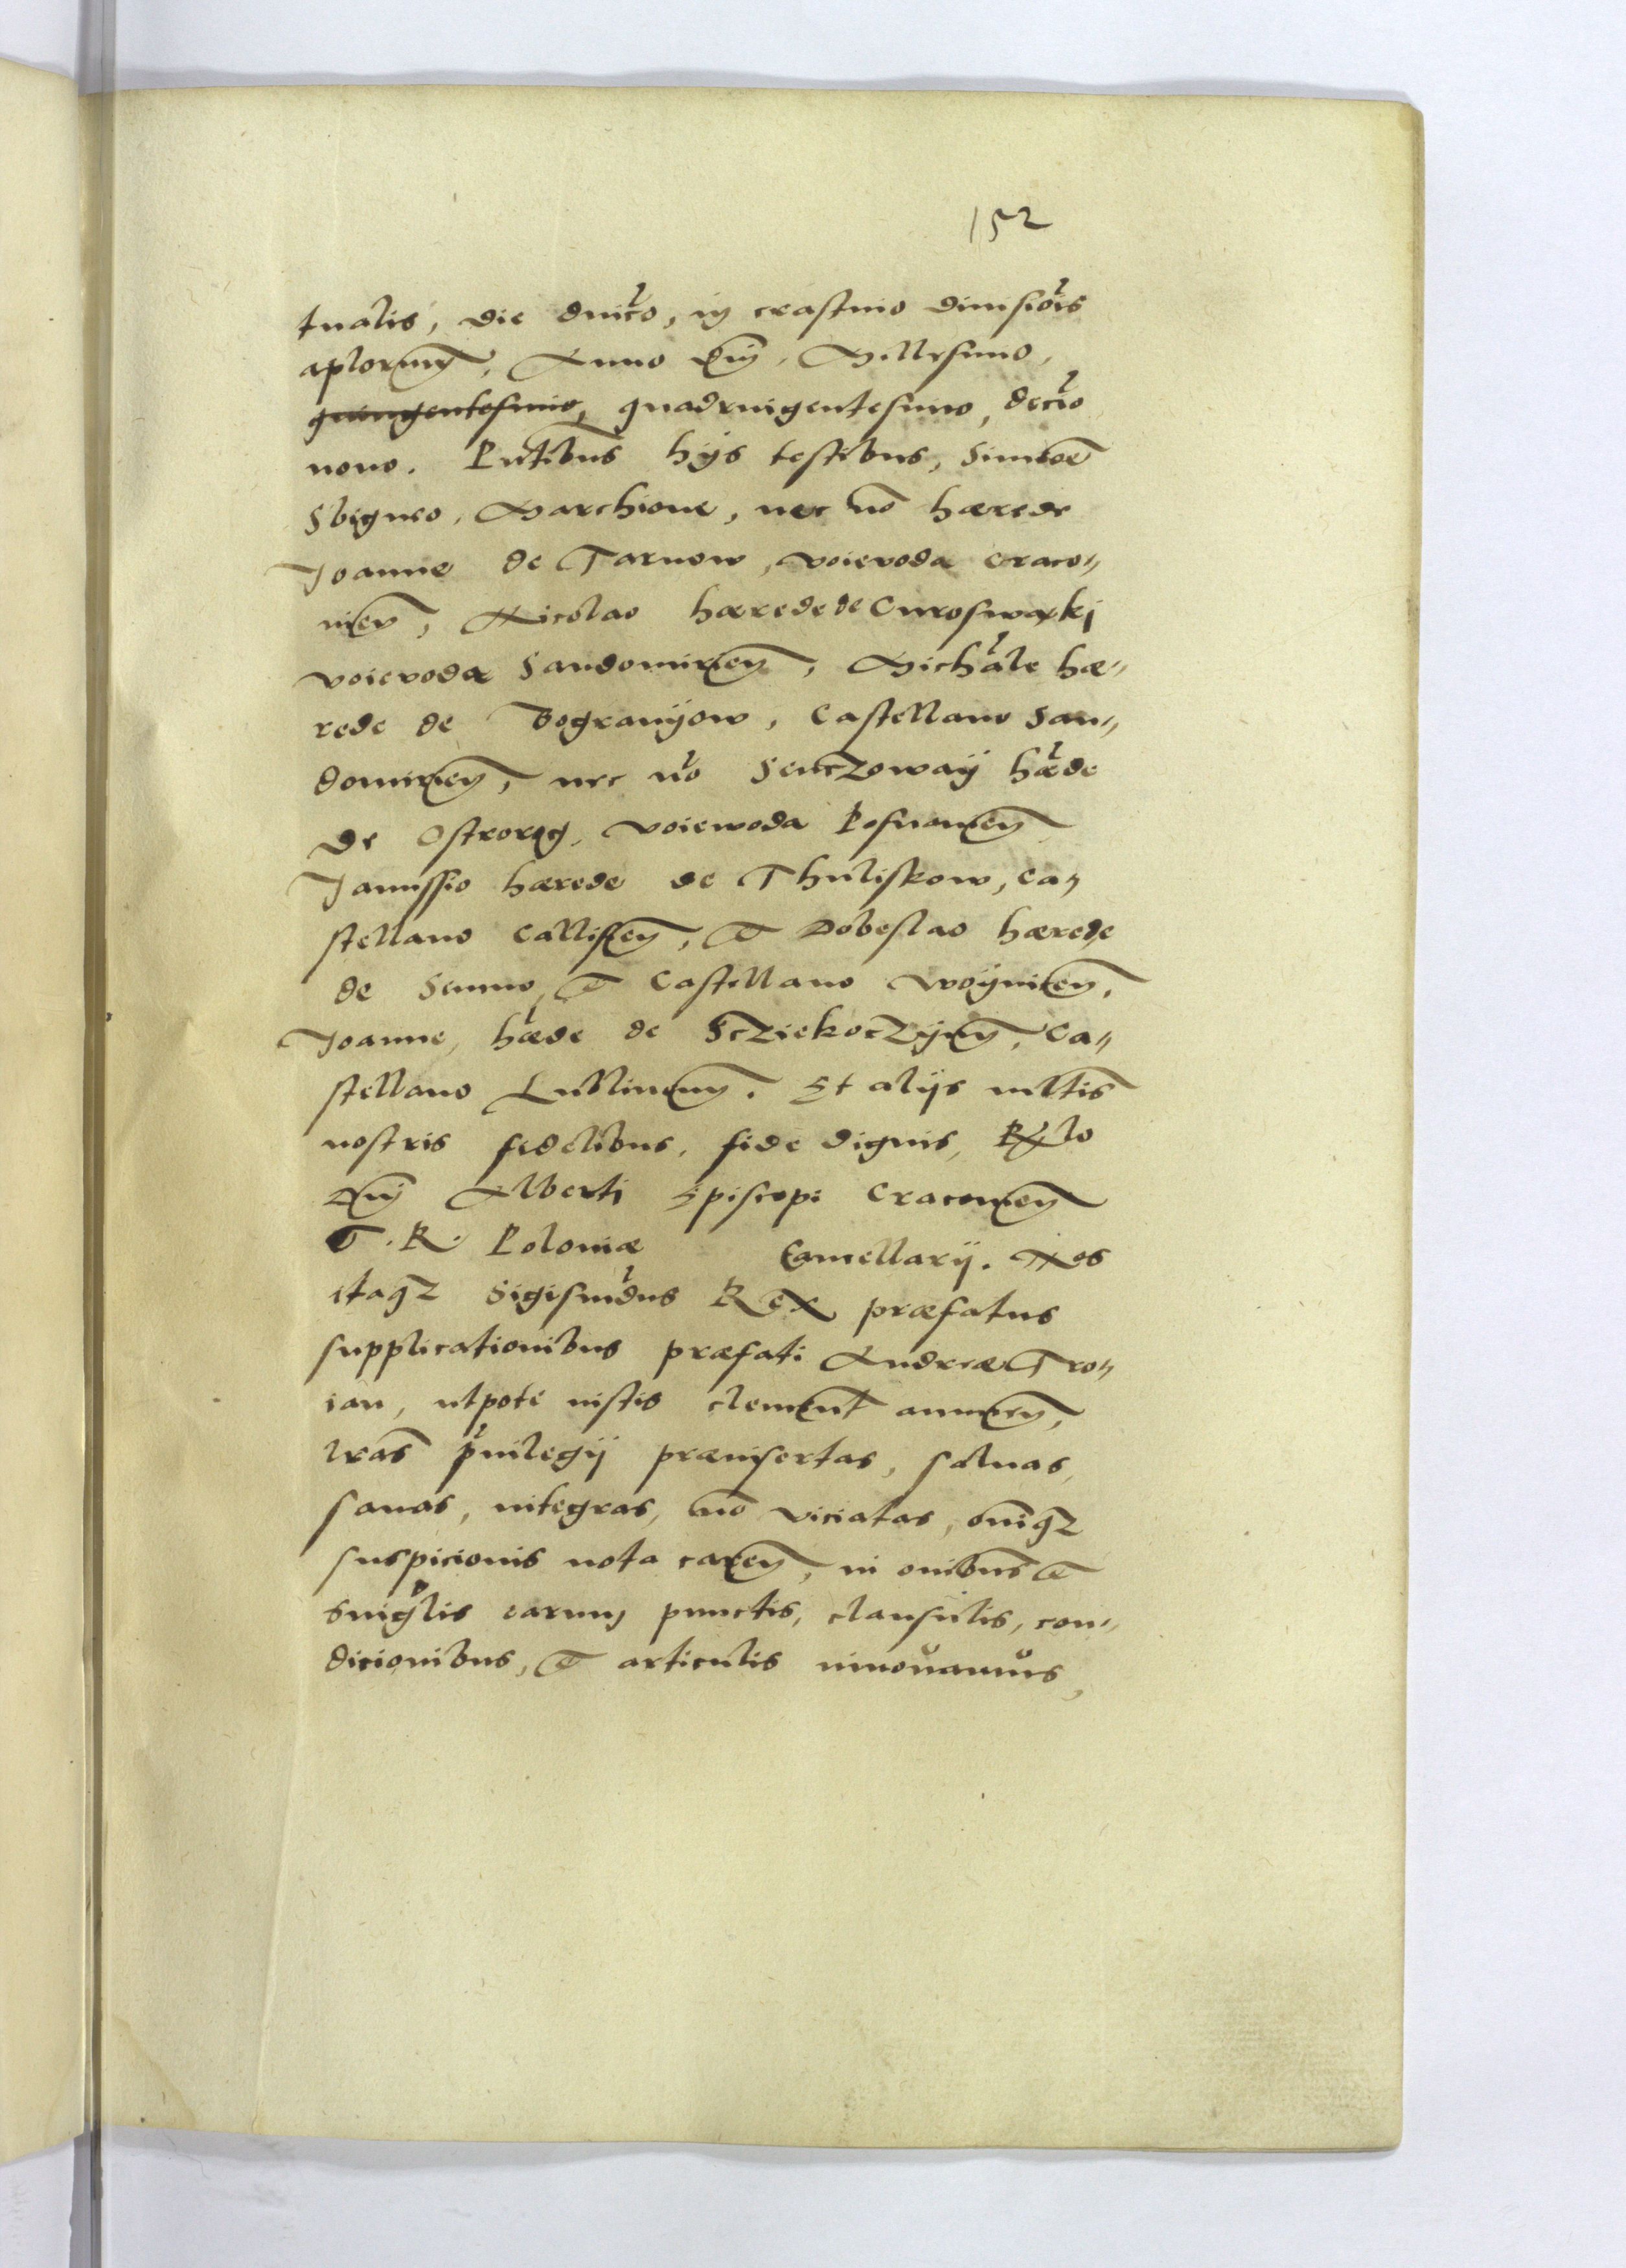 152
tualis, die dnico, in crastino diuisiois
aplorum, Anno Dni, Millesimo,
quingentesimo, quadruigentesimo, decio
nono. Pntibus hijs testibus, Simeoe
Sbigneo, Marchione, nec no hærede
Joanne de Tarnow, voievoda craco„
nien, Nicolao hærede de Curoswaxki
voievoda Sandomirien, Michale hæ„
rede de Bogranijow, Castellano San„
domirien, nec no Senczoway hæde
de Ostrorog, voiewoda Posnanien
Janussio hærede de Thuliskow, Ca„
stellano Callisien, et Dobeslao hærede
de Senno, et Castellano woynicien,
Joanne, hæde de Scziekoczijny, Ca„
stellano Lublinen. Et alijs multis
nostris fidelibus, fide dignis,
Dni Alberti Episcopi Cracouien
et. R. Poloniæ Cancellarij. Nos
itaqz Sigismudus Rex præfatus
supplicationibus præfati Andreæ Tro„
ian, utpote iustis clement annuen,
lras priuilegij præinsertas, saluas,
sanas, integras, no viciatas, oniqz
suspicionis nota caren, in onibus et
singlis earum punctis, clausulis, con„
dicionibus, et articulis innouamus,